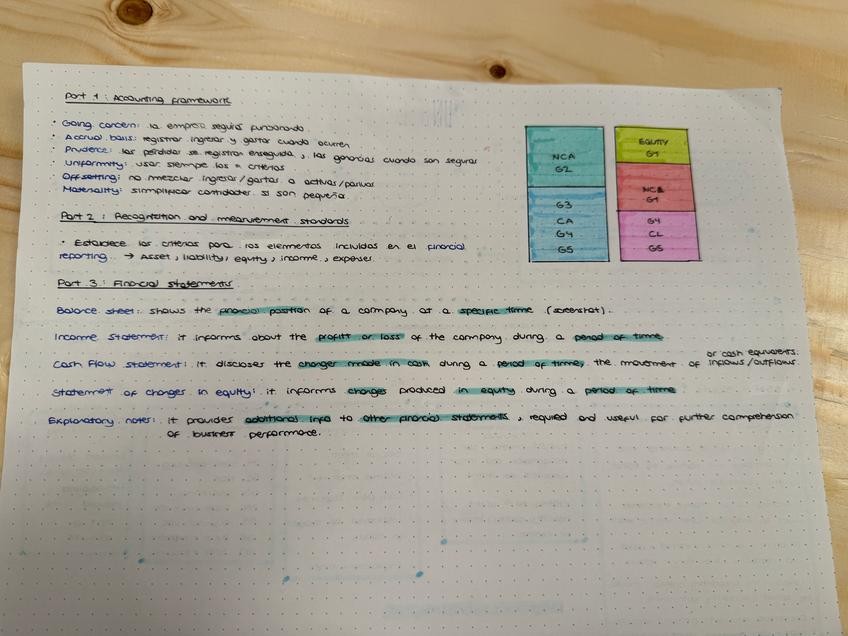 Part 1: Accounting framework
· Going concern: la empresa seguirá funcionando
· Accrual basis: registrar ingresar y gastar cuando ocurren
· Prudence: las pérdidas se registran enseguida, las ganancias cuando son seguras
· Uniformity: usar siempre los = criterios
· Offsetting: no mezclar ingresos/gastos o activos/pasivos
· Materiality: simplificar cantidades si son pequeñas
Part 2: Recognition and measurement standards
· Establece los criterios para los elementos incluidos en el financial
reporting → Asset, liability, equity, income, expenses.
Part 3: Financial statements
Balance sheet: shows the financial position of a company at a specific time (screenshot).
Income Statement: it informs about the profit or loss of the company during a period of time
or cash equivalents.
Cash Flow statement: it discloses the changes made in cash during a period of time, the movement of inflows/outflows
Statement of changes in equity: it informs changes produced in equity during a period of time
Explanatory notes: it provides additional info to other financial statements, required and useful for further comprehension
of business performance.
NCA
G2
G3
CA
G4
G5
EQUITY
G1
NCL
G1
G4
CL
G5